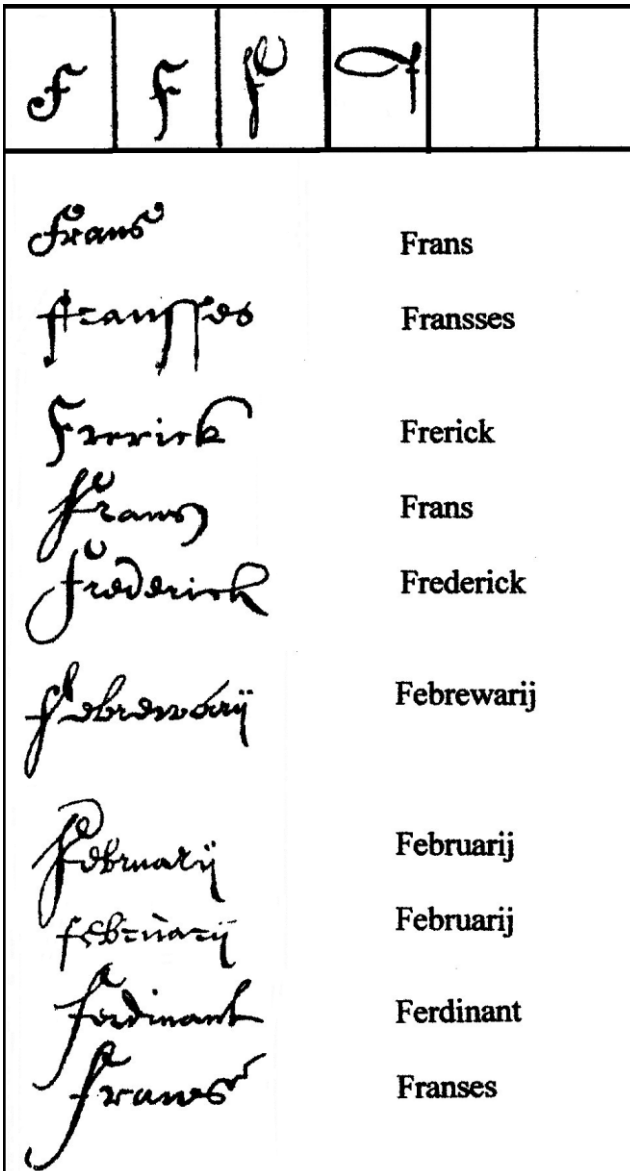 F F F F
Frans Frans
Fransses Fransses
Frerick Frerick
Frans Frans
Frederick Frederick
Febrewarij Febrewarij
Februarij Februarij
februarij Februarij
Ferdinant Ferdinant
Franses Franses